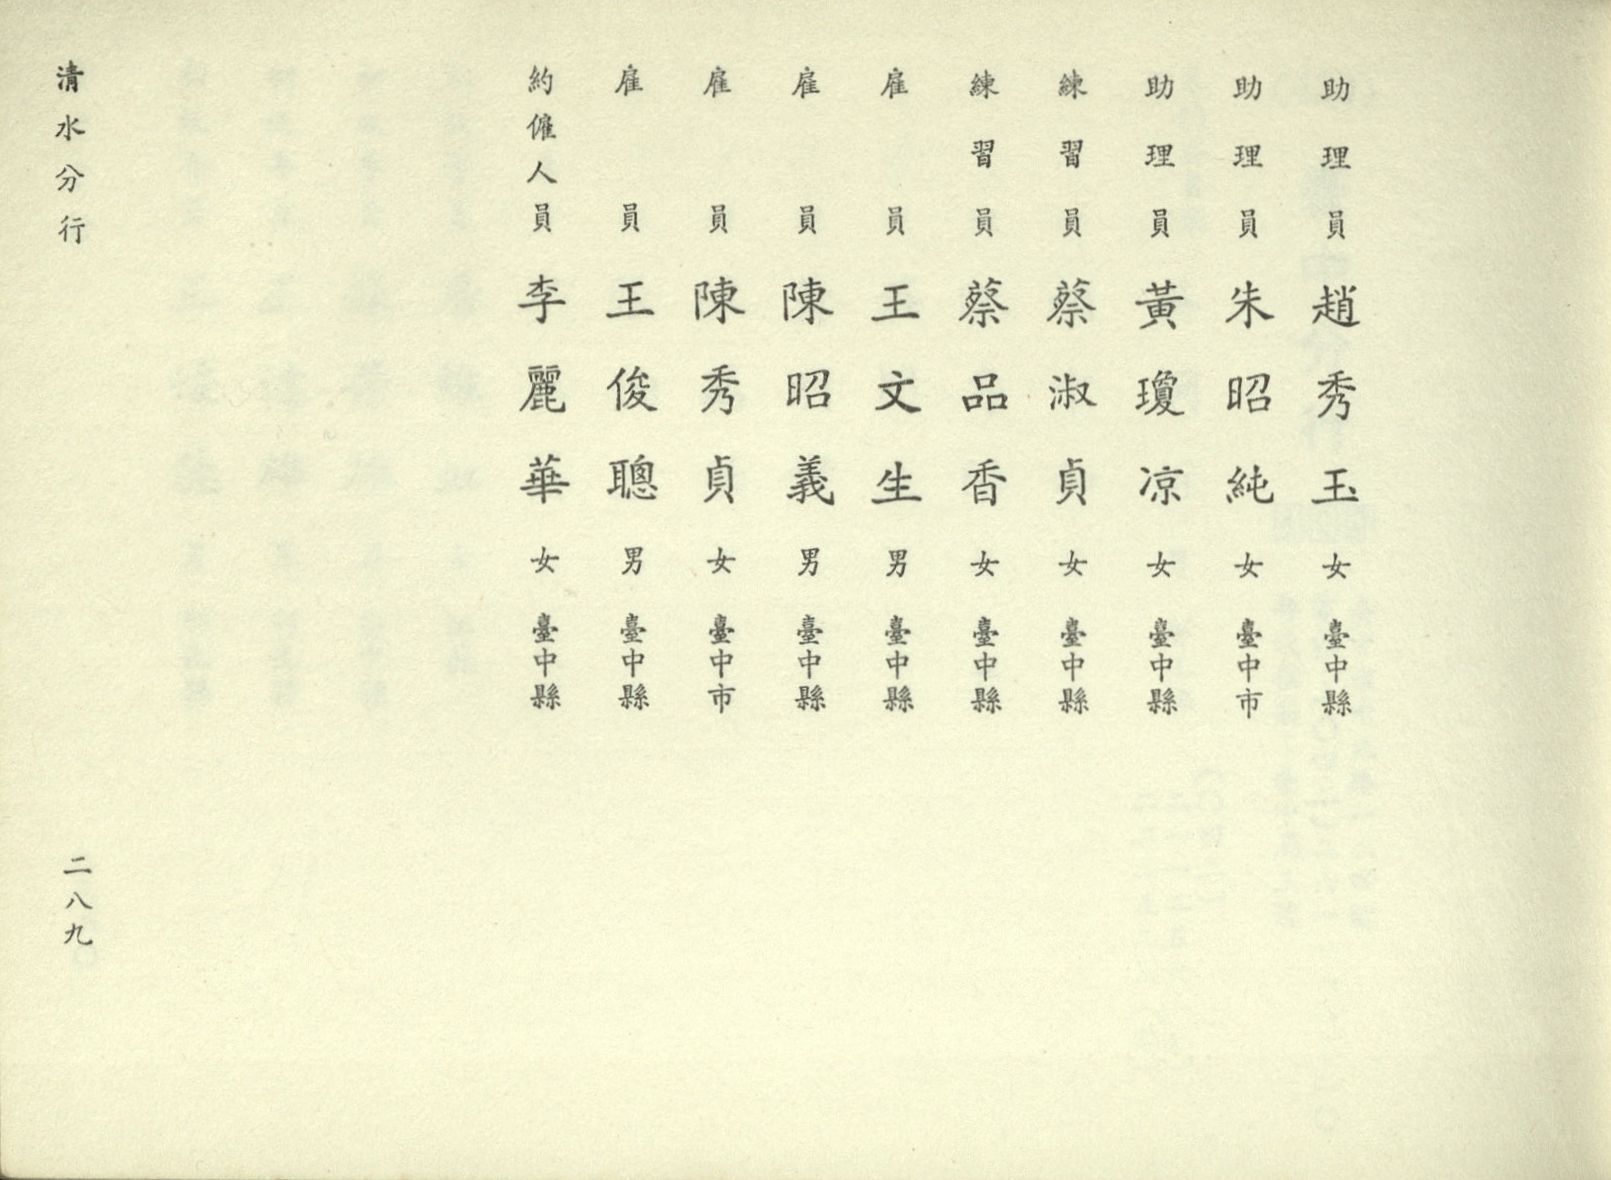 助理員 趙秀玉 女 臺中縣
助理員 朱昭純 女 臺中市
助理員 黃瓊凉 女 臺中縣
練習員 蔡淑貞 女 臺中縣
練習員 蔡品香 女 臺中縣
雇員 王文生 男 臺中縣
雇員 陳昭義 男 臺中縣
雇員 陳秀貞 女 臺中市
雇員 王俊聰 男 臺中縣
約僱人員 李麗華 女 臺中縣
清水分行
二八九